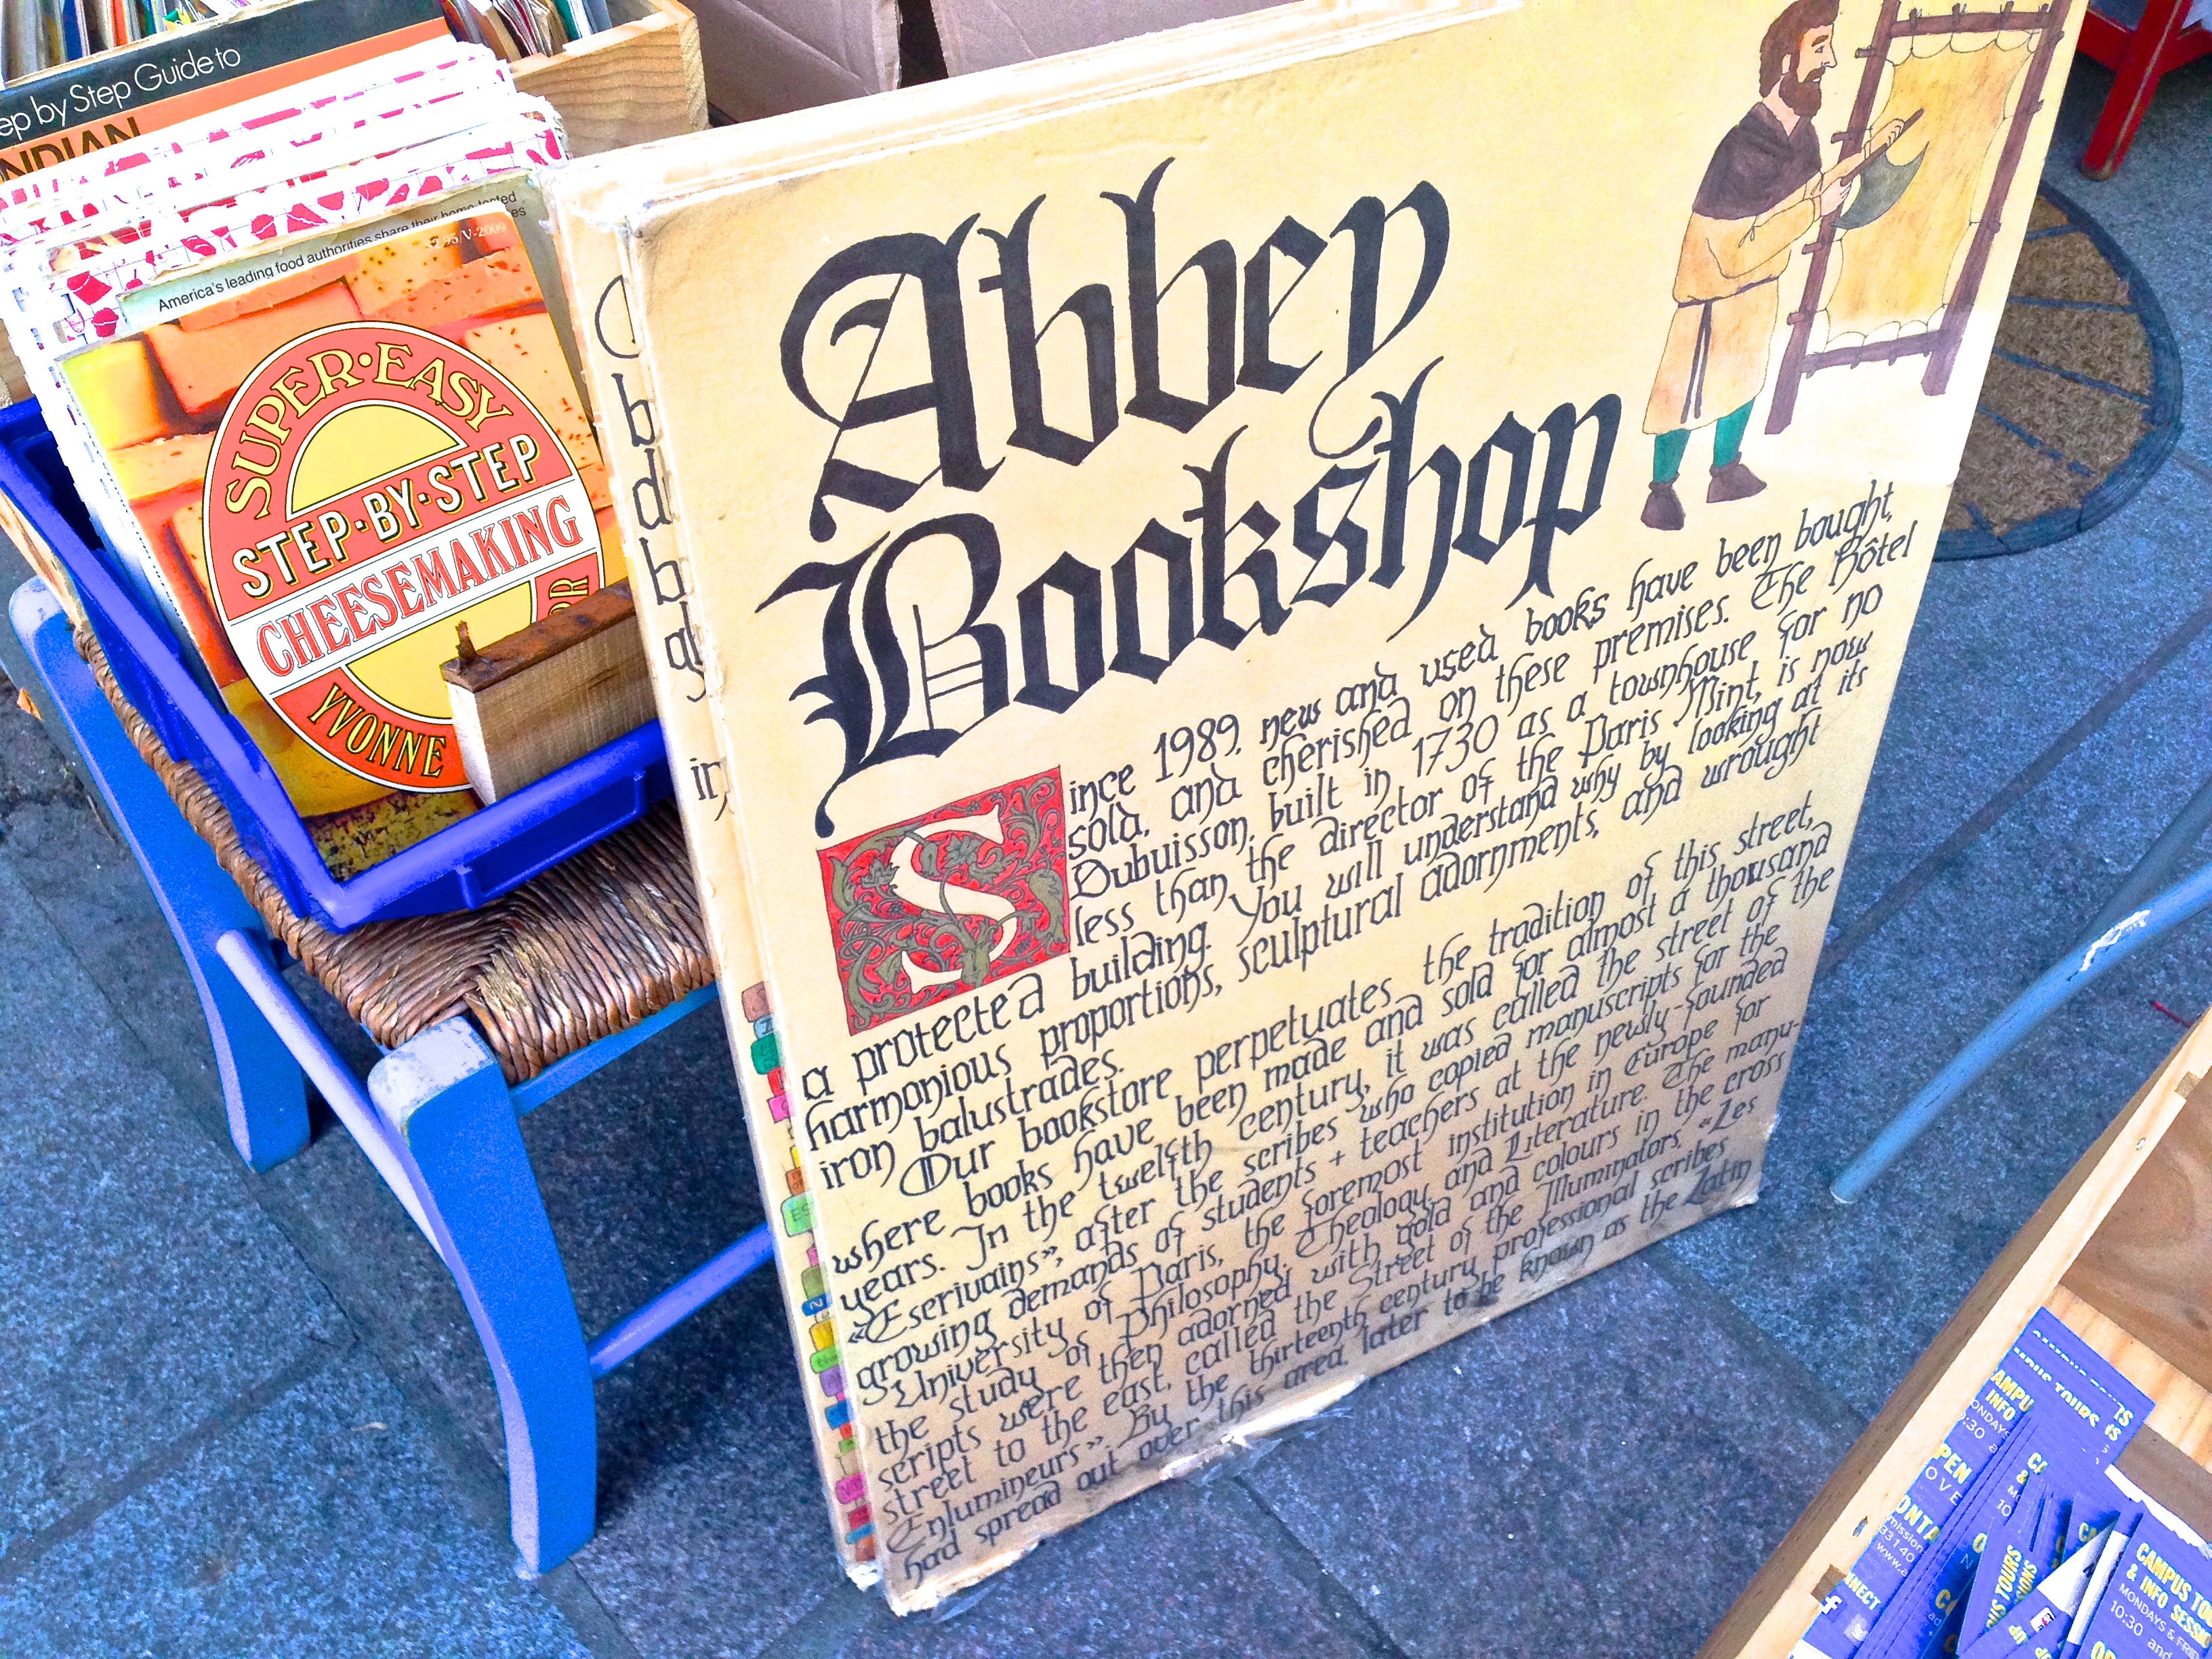 ep by Step Guide to
NDIAN
America's leading food authorities share their home-tested
/V-2009
SUPER·EASY
STEP·BY·STEP
CHEESEMAKING
YVONNE
OR
Abbey
Bookshop
Since 1989, new and used books have been bought,
sold, and cherished on these premises. The Hôtel
Dubuisson, built in 1730 as a townhouse for no
less than the director of the Paris Mint, is now
a protected building. You will understand why by looking at its
harmonious proportions, sculptural adornments, and wrought
iron balustrades.
Our bookstore perpetuates the tradition of this street,
where books have been made and sold for almost a thousand
years. In the twelfth century, it was called the street of the
«Escrivains», after the scribes who copied manuscripts for the
growing demands of students + teachers at the newly-founded
University of Paris, the foremost institution in Europe for
the study of Philosophy, Theology, and Literature. The manu-
scripts were then adorned with gold and colours in the cross
street to the east, called the Street of the Illuminators, «Les
Enlumineurs». By the thirteenth century, professional scribes
had spread out over this area, later to be known as the Latin
CAMPUS TO
& INFO SESSI
MONDAYS & FRI
10:30 and